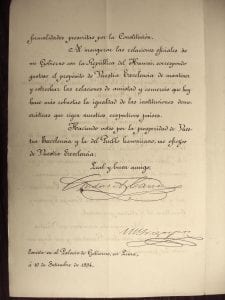 formalidades prescritas por la Constitución.
Al inaugurar las relaciones oficiales de
mi Gobierno con la República del Hawaii, correspondo
gustoso el propósito de Vuestra Excelencia de mantener
y estrechar las relaciones de amistad y comercio que hoy
hace más robustas la igualdad de las instituciones demo-
cráticas que rigen nuestros respectivos países.
Haciendo votos por la prosperidad de Vues-
tra Excelencia y la del Pueblo hawaiiano, me ofrezco
de Vuestra Excelencia
Leal y buen amigo,
Escrita en el Palacio de Gobierno, en Lima,
á 10 de Setiembre de 1894.